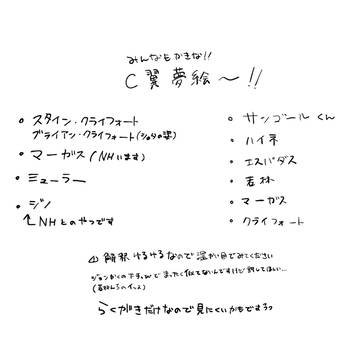 みんなもかきな!!
C翼夢絵〜!!
• スタイン・クライフォート
ブライアン・クライフォート(ショタの姿)
• マーガス(NHいます)
• ミューラー
• ジノ
↑NHとのやつです
• サンゴールくん
• ハイネ
• エスパダス
• 若林
• マーガス
• クライフォート
⚠ 解釈ゆるゆるなので温かい目でみてください
まったく似てないんですけど許してほしい…
らくがきだけなので見にくいかもですぅっ